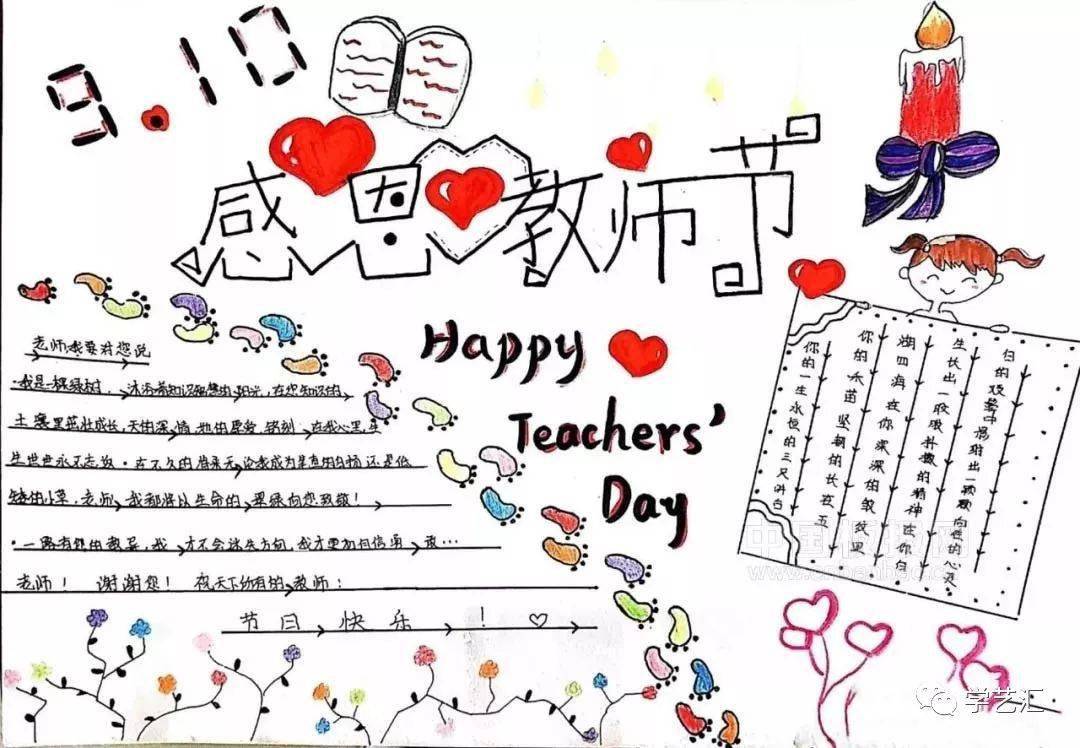 9.10
感恩教师节
Happy
Teachers'
Day
老师,我要对您说
·我是一棵绿树,沐浴着知识和智慧的阳光,在您知识的
土壤里茁壮成长,天的深情,地的厚爱,铭刻在我心里,生
生世世永不忘怀·在不久的将来,无论我成为挺直的白杨还是低
矮的小草,老师,我都将以生命的翠绿向您致敬!
·一路有您的教导,我才不会迷失方向,我才更加自信勇敢…
老师!谢谢您!祝天下所有的教师:
节日快乐!
你的一生永恒的三尺讲台
你的禾苗坚韧的长在五
湖四海在你深深的皱纹里
生长出一股股朴微的精神在你白
白的烟雾中雕出一颗颗向善的心灵
中国板报网
学艺汇